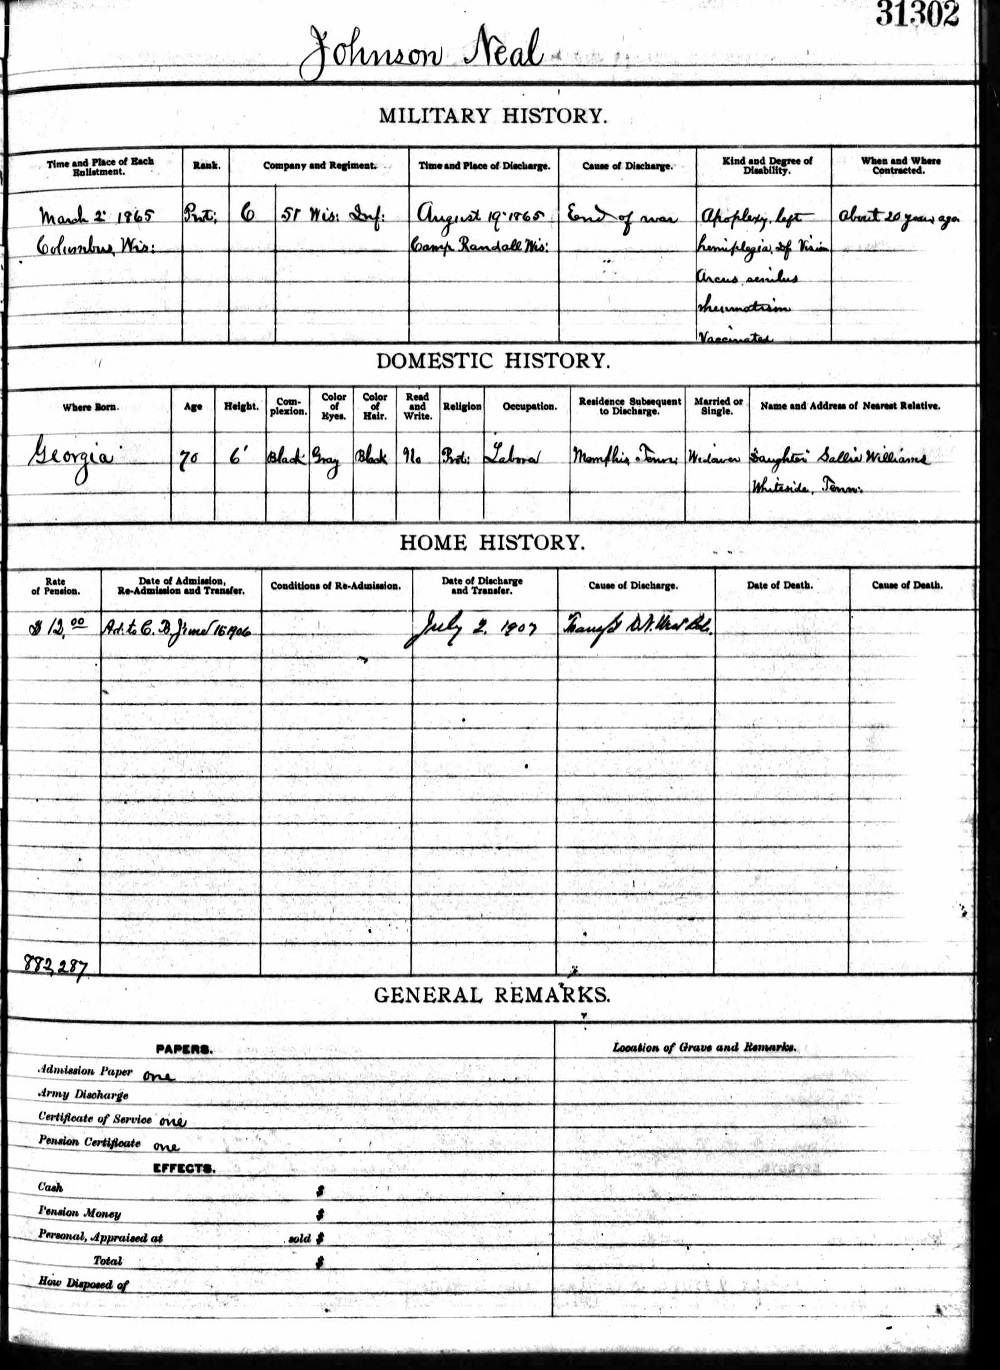 31302
Johnson Neal
MILITARY HISTORY.
Time and Place of Each Enlistment.
Rank.
Company and Regiment.
Time and Place of Discharge.
Cause of Discharge.
Kind and Degree of Disability.
When and Where Contracted.
March 2" 1865 Prvt; C 51 Wis: Inf: August 19" 1865 End of war Apoplexy, left About 20 years ago
Columbus, Wis: Camp Randall Wis: hemiplegia, Df Vision
Arcus senilus
rheumatism
Vaccinated
DOMESTIC HISTORY.
Where Born.
Age
Height.
Complexion.
Color of Eyes.
Color of Hair.
Read and Write.
Religion
Occupation.
Residence Subsequent to Discharge.
Married or Single.
Name and Address of Nearest Relative.
Georgia 70 6' Black Gray Black No Prot: Labor Memphis Tenn: Widower Daughter Sallie Williams
Whiteside, Tenn:
HOME HISTORY.
Rate of Pension.
Date of Admission, Re-Admission and Transfer.
Conditions of Re-Admission.
Date of Discharge and Transfer.
Cause of Discharge.
Date of Death.
Cause of Death.
$12.00 Ad. to C. B. June 15 1906 July 2, 1907
882,287
GENERAL REMARKS.
PAPERS.
Location of Grave and Remarks.
Admission Paper one
Army Discharge
Certificate of Service one
Pension Certificate one
EFFECTS.
Cash $
Pension Money $
Personal, Appraised at sold $
Total $
How Disposed of